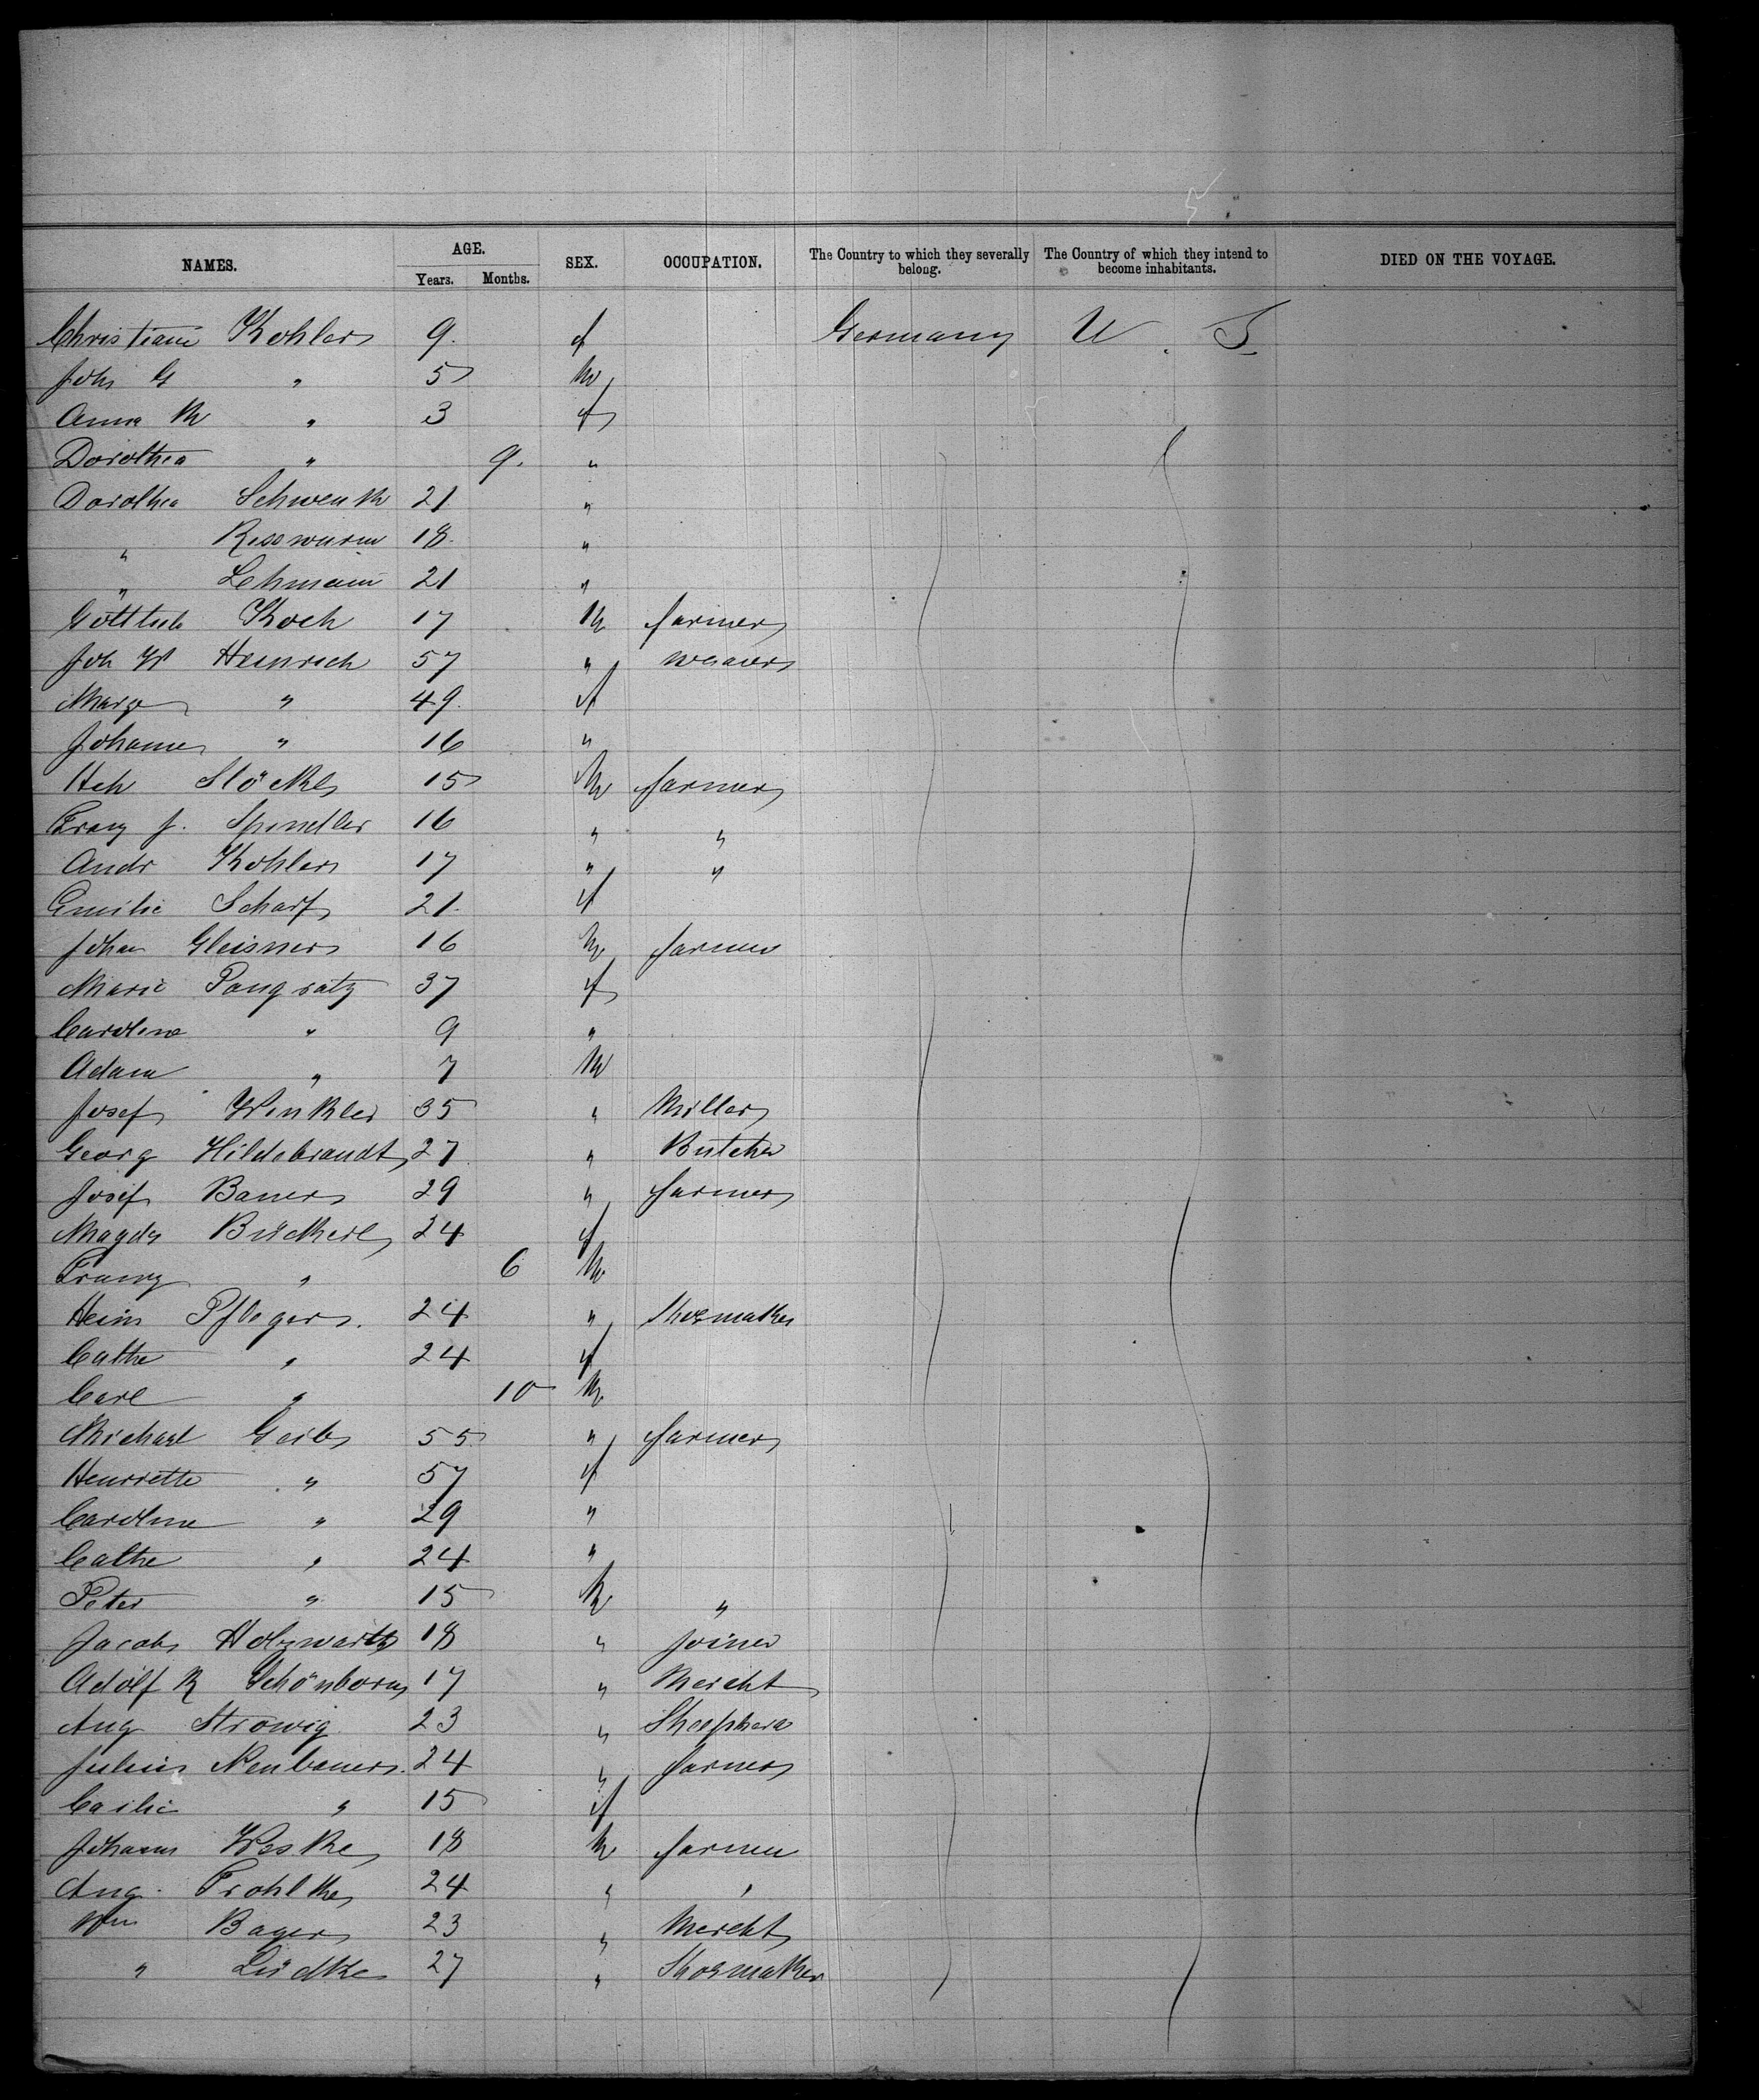 NAMES. AGE. SEX. OCCUPATION. The Country to which they severally belong. The Country of which they intend to become inhabitants. DIED ON THE VOYAGE.
Years. Months.
Christiane Kohler 9. f Germany U. S.
Joh G " 5 M
Anna M " 3 f
Dorothea " 9. "
Dorothea Schwenk 21 "
" Resswurm 18. "
" Lehmann 21 "
Gottlieb Koch 17 M farmer
Joh W Heinrich 57 " weaver
Marg " 49. f
Johanne " 16 "
Hch Stöckl 15 M farmer
Franz J. Spindler 16 " "
Andr Kohler 17 " "
Emilie Scharf 21. f
Johan Gleisner 16 M farmer
Marie Pangratz 37 f
Caroline " 9 "
Adam " 7 M
Josef Winkler 35 " Miller
Georg Hildebrandt 27 " Butcher
Josef Bauer 29 " farmer
Magda Bückerl 24 f
Franz " 6 M
Hein Pfleger. 24 " Shoemaker
Cathe " 24 f
Carl " 10 M
Michael Geib 55 " farmer
Henriette " 57 f
Caroline " 29 "
Cathe " 24 "
Peter " 15 M "
Jacob Holzwarth 18 " Joiner
Adolf R Schönborn 17 " Mercht
Aug Strowig 23 " Sheepherd
Julius Neubauer. 24 " farmer
" 15 f
Johann Weske 18 M farmer
Aug. Frohlke 24 " "
Wm Bager 23 " Mercht
" Lüdke 27 " Shoemaker